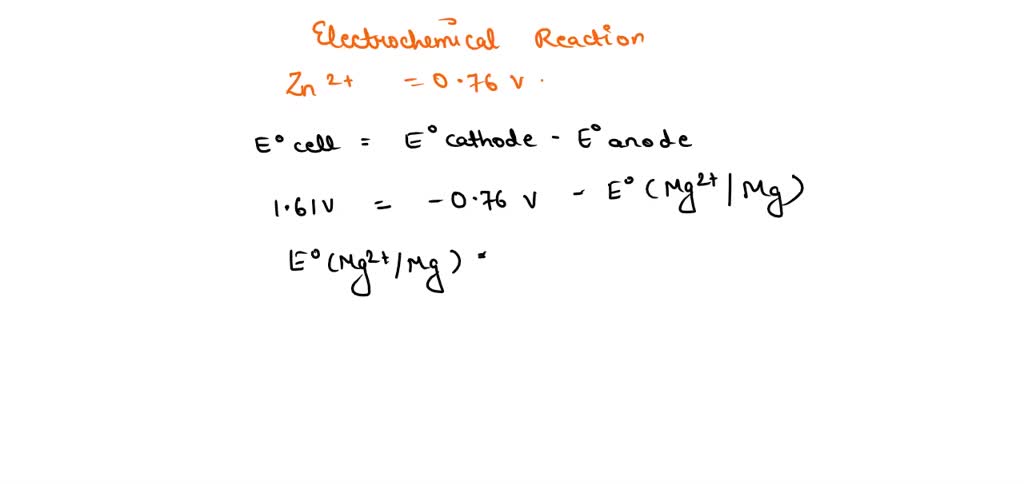 Electrochemical Reaction
Zn 2+ = 0.76 V.
E° cell = E° cathode - E° anode
1.61V = -0.76 V - E° (Mg2+ | Mg)
E° (Mg2+ / Mg) =